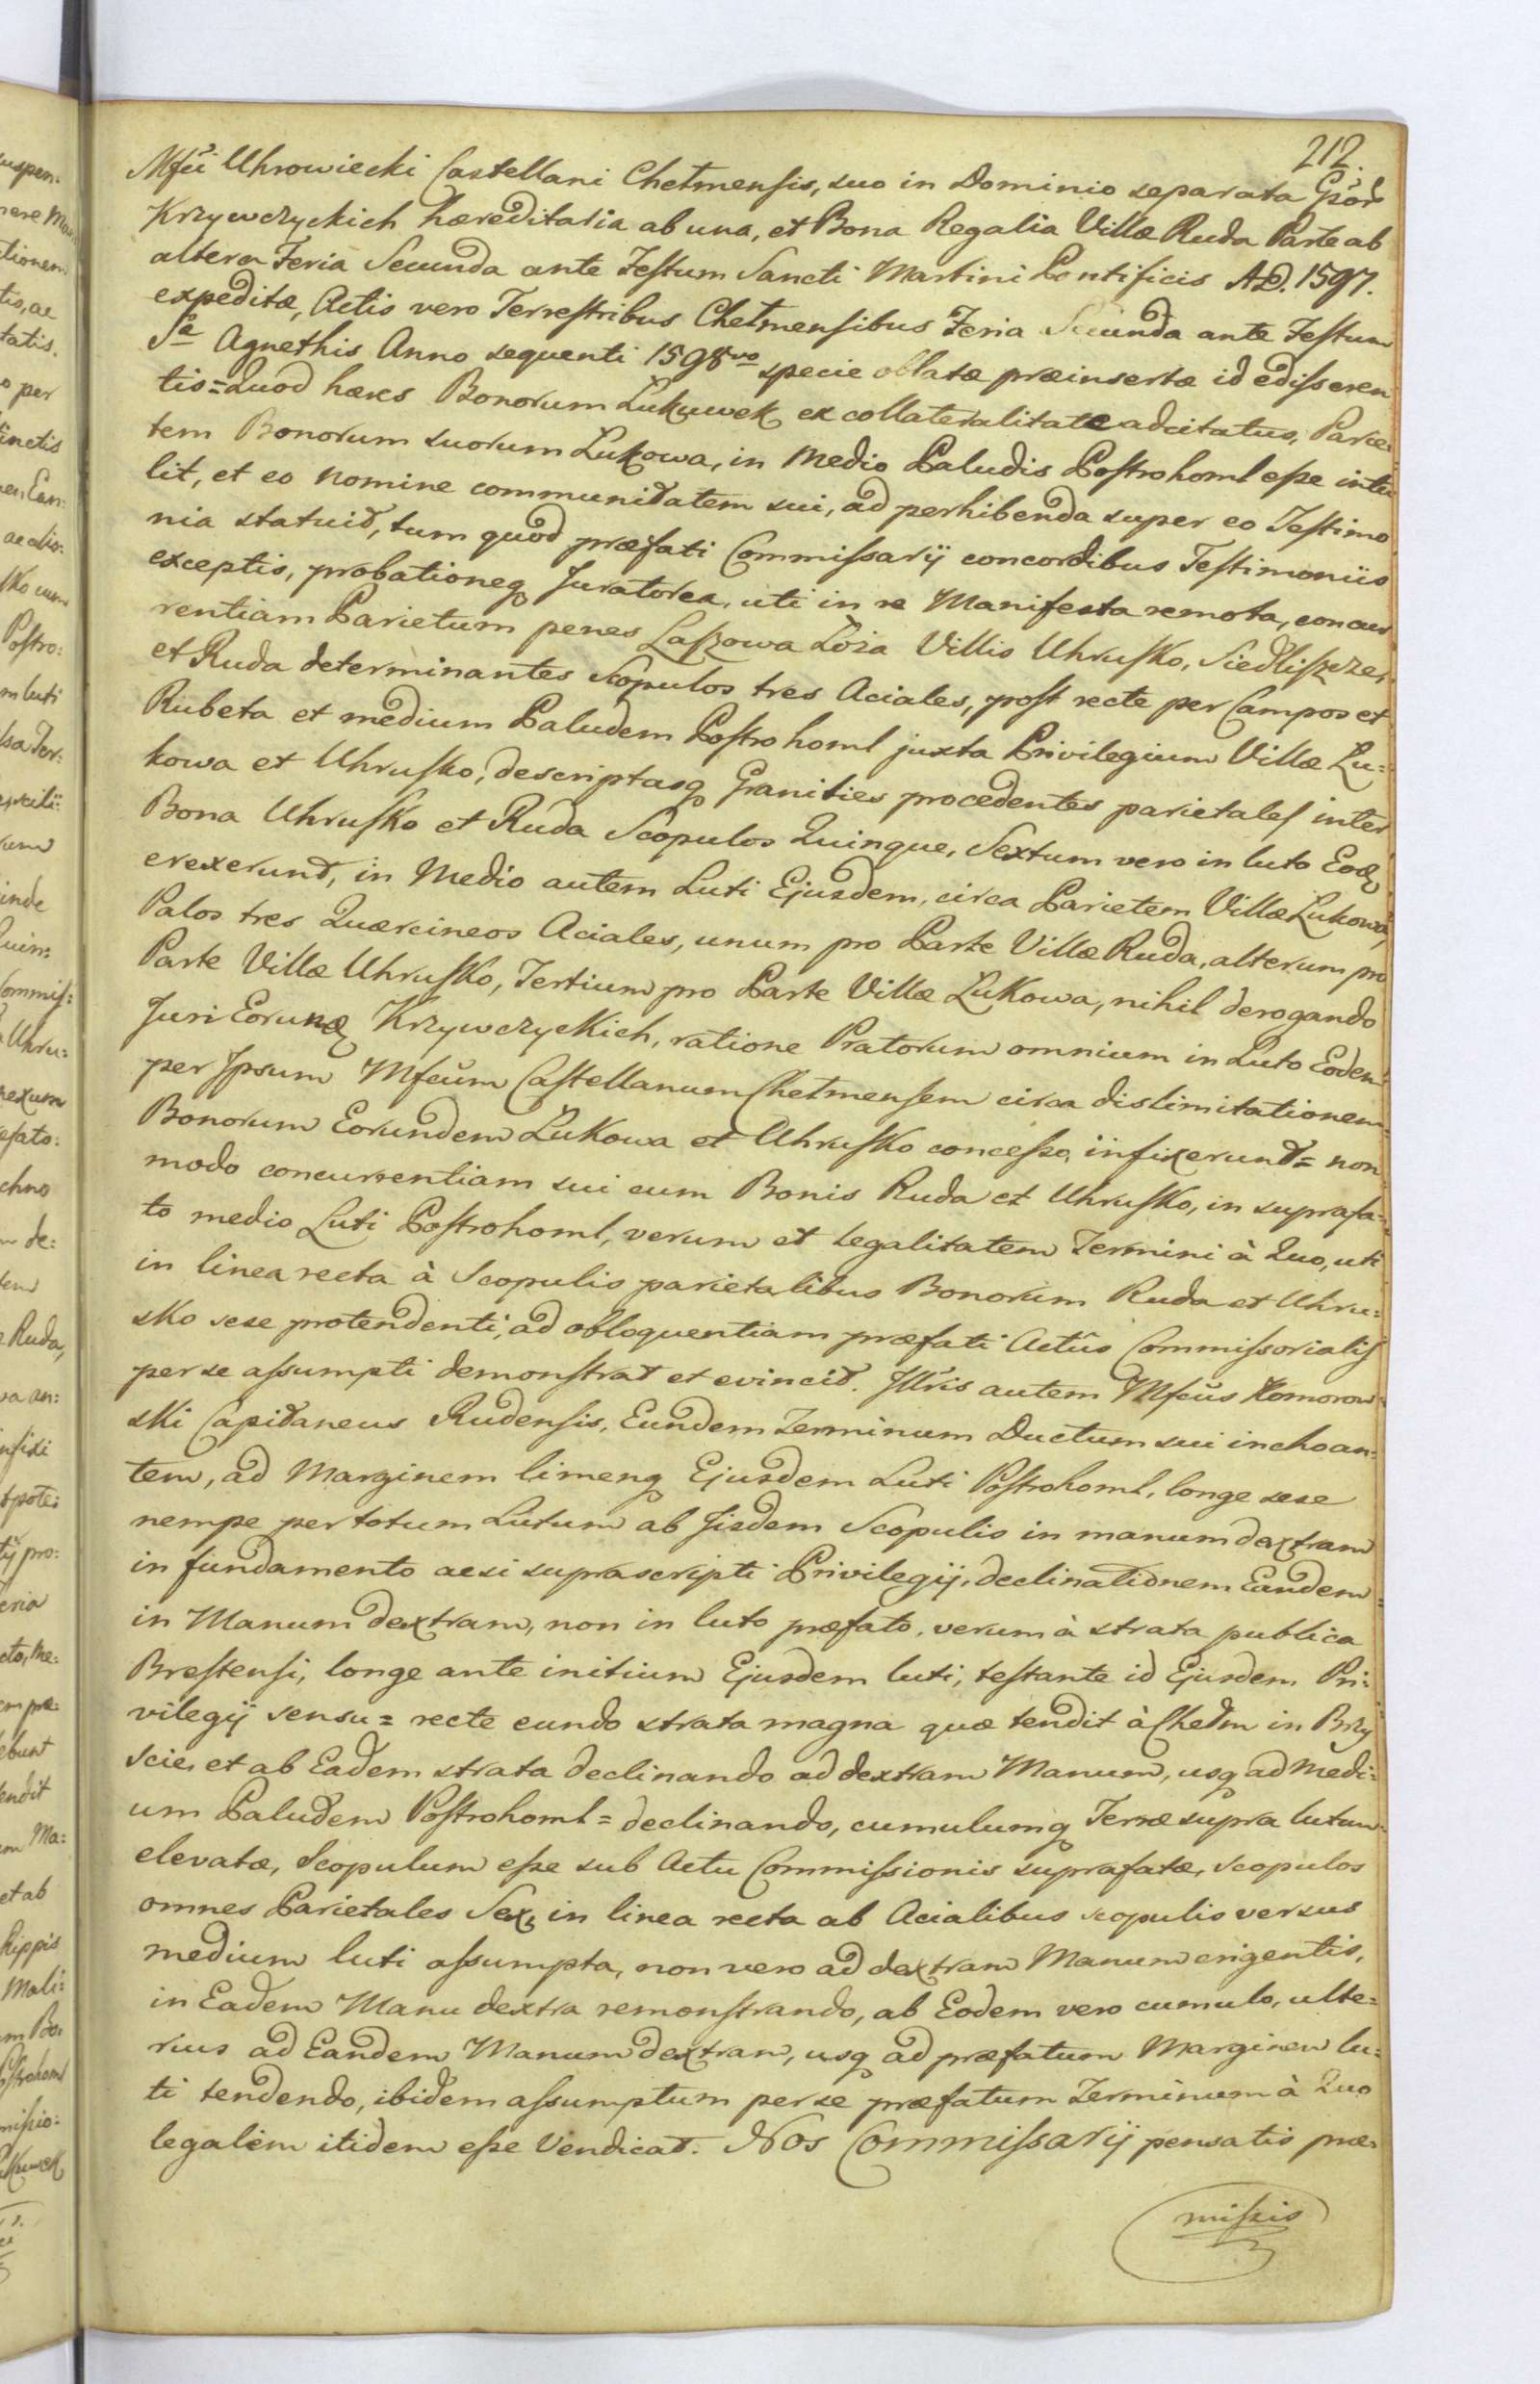 212.
Mfci Uhrowiecki Castellani Chełmensis, suo in Dominio separata Gsor
Krzywczyckich hæreditaria ab una, et Bona Regalia Villæ Ruda Parte ab
altera Feria Secunda ante Festum Sancti Martini Pontificis A.D. 1597.
expeditæ, Actis vero Terrestribus Chełmensibus Feria Secunda ante Festum
Sæ Agnethis Anno sequenti 1598vo specie oblatæ præinsertæ id edisseren
tis = Quod hæres Bonorum Łukuwek ex collateralitate adcitatus, Parie
tem Bonorum suorum Łukowa, in Medio Paludis Postrohoml esse intu
lit, et eo nomine communitatem sui, ad perhibenda super eo Testimo
nia statuit, tum quod præfati Commissarij concordibus Testimoniis
exceptis, probationeq Juratorea, uti in re Manifesta remota, concur
rentiam Parietum penes Laszowa Łoża Villis Uhrusko, Siedliszcze,
et Ruda determinantes Scopulos tres Aciales, post recte per Campos et
Rubeta et medium Paludem Postrohoml juxta Privilegium Villæ Łu=
kowa et Uhrusko, descriptasq Granities procedentes parietales inter
Bona Uhrusko et Ruda Scopulos Quinque, Sextum vero in luto Eoq
erexerunt, in Medio autem Luti Ejusdem, circa Parietem Villæ Łukowa,
Palos tres Quærcineos Aciales, unum pro Parte Villæ Ruda, alterum pro
Parte Villæ Uhrusko, Tertium pro Parte Villæ Łukowa, nihil derogando
Juri Eorunq Krzywczyckich, ratione Pratorum omnium in Luto Eodem
per Ipsum Mfcum Castellanum Chełmensem circa dislimitationem
Bonorum Eorundem Łukowa et Uhrusko concesso, infixerunt = non
modo concurrentiam sui cum Bonis Ruda et Uhrusko, in suprafa=
to medio Luti Postrohoml, verum et legalitatem Termini à Quo, uti
in linea recta à Scopulis parietalibus Bonorum Ruda et Uhru=
sko sese protendenti, ad obloquentiam præfati Actûs Commissorialis
per se assumpti demonstrat et evincit. Illris autem Mfcus Komorow
ski Capitaneus Rudensis, Eundem Terminum Ductum sui inchoan=
tem, ad Marginem limenq Ejusdem Luti Postrohoml, longe sese
nempe per totum Lutum ab Iisdem Scopulis in manum dextram
in fundamento acsi suprascripti Privilegij, declinationem Eandem
in Manum dextram, non in luto præfato, verum à strata publica
Brestensi, longe ante initium Ejusdem luti, testante id Ejusdem Pri=
vilegij sensu = recte eundo strata magna quæ tendit à Chełm in Brzy
scie, et ab Eadem strata declinando ad dextram Manum, usq ad Medi=
um Paludem Postrohoml = declinando, cumulumq Terræ supra lutum
elevatæ, Scopulum esse sub Actu Commissionis suprafatæ, scopulos
omnes Parietales Sex, in linea recta ab Acialibus scopulis versus
medium luti assumpta, non vero ad dextram Manum erigentis,
in Eadem Manu dextra remonstrando, ab Eodem vero cumulo, ulte=
rius ad Eandem Manum dextram, usq ad præfatum Marginem lu=
ti tendendo, ibidem assumptum per se præfatum Terminum à Quo
legalem itidem esse Vendicat. Nos Commissarij pensatis præ=
missis